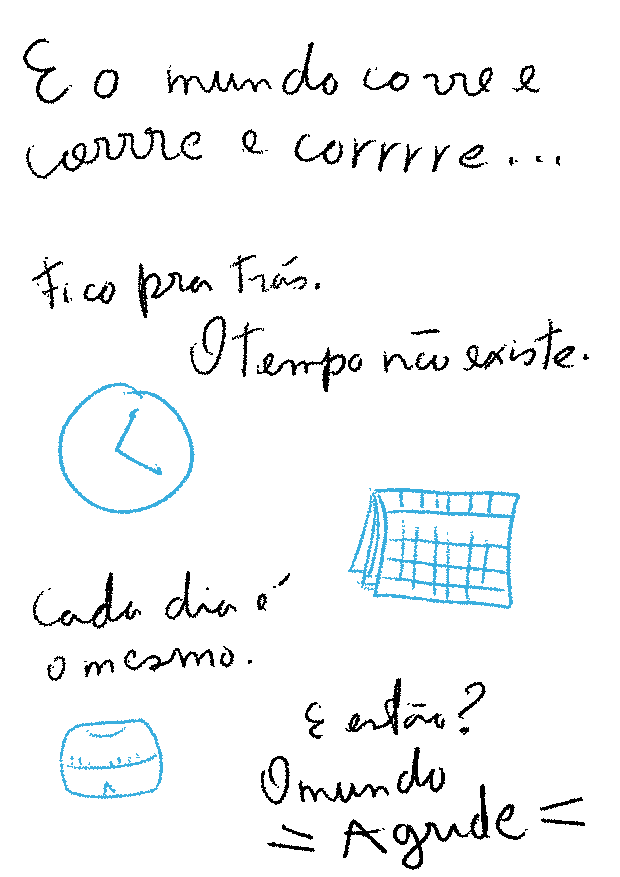 E o mundo corre e
corrre e corrrre...
Fico pra trás.
O tempo não existe.
Cada dia é
o mesmo.
E então?
O mundo
= Agride =